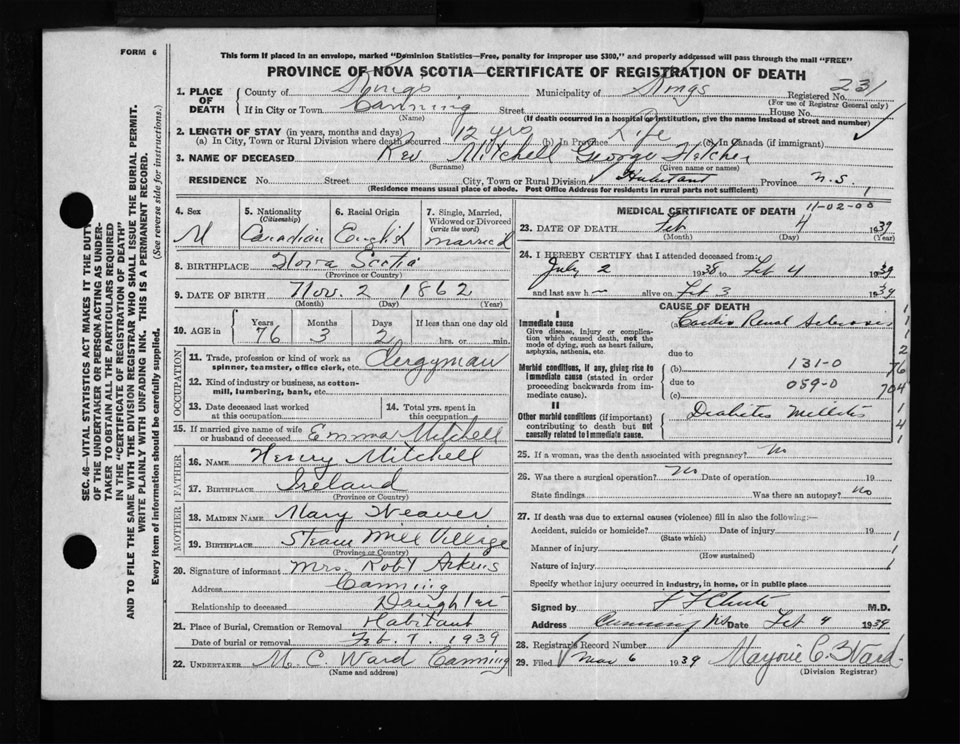 FORM 6
This form if placed in an envelope, marked "Dominion Statistics—Free, penalty for improper use $300," and properly addressed will pass through the mail "FREE"
PROVINCE OF NOVA SCOTIA—CERTIFICATE OF REGISTRATION OF DEATH
231
1. PLACE OF DEATH County of Kings Municipality of Kings Registered No.
(For use of Registrar General only)
If in City or Town Canning Street House No.
(Name) (If death occurred in a hospital or institution, give the name instead of street and number)
2. LENGTH OF STAY (in years, months and days)
(a) In City, Town or Rural Division where death occurred 12 yrs (b) In Province Life (c) In Canada (if immigrant)
3. NAME OF DECEASED Rev. Mitchell George Fletcher
(Surname) (Given name or names)
RESIDENCE No. Street City, Town or Rural Division Habitant Province N.S.
(Residence means usual place of abode. Post Office Address for residents in rural parts not sufficient)
1
4. Sex M
5. Nationality (Citizenship) Canadian
6. Racial Origin English
7. Single, Married, Widowed or Divorced (write the word) married
8. BIRTHPLACE Nova Scotia
(Province or Country)
9. DATE OF BIRTH Nov. 2 1862
(Month) (Day) (Year)
10. AGE in Years 76 Months 3 Days 2 If less than one day old hrs. or min.
OCCUPATION
11. Trade, profession or kind of work as spinner, teamster, office clerk, etc. Clergyman
12. Kind of industry or business, as cotton-mill, lumbering, bank, etc.
13. Date deceased last worked at this occupation
14. Total yrs. spent in this occupation
15. If married give name of wife or husband of deceased Emma Mitchell
FATHER
16. Name Henry Mitchell
17. Birthplace Ireland
(Province or Country)
MOTHER
18. Maiden Name Mary Weaver
19. Birthplace Mill Village
(Province or Country)
20. Signature of informant Mrs. Robt
Address Canning
Relationship to deceased Daughter
21. Place of Burial, Cremation or Removal Habitant
Date of burial or removal Feb. 7. 1939
22. UNDERTAKER M. C Ward Canning
(Name and address)
MEDICAL CERTIFICATE OF DEATH 11-02-00
23. DATE OF DEATH Feb 4 1939
(Month) (Day) (Year)
24. I HEREBY CERTIFY that I attended deceased from:
July 2 1938 to Feb 4 1939
and last saw h alive on Feb 3 1939
CAUSE OF DEATH
I
Immediate cause
Give disease, injury or complication which caused death, not the mode of dying, such as heart failure, asphyxia, asthenia, etc.
(a) Cardio Renal Sclerosis
due to
Morbid conditions, if any, giving rise to immediate cause (stated in order proceeding backwards from immediate cause).
(b) 131-0
due to 059-0
(c)
II
Other morbid conditions (if important) contributing to death but not causally related to immediate cause.
Diabetes Mellitis
1
1
2
76
704
1
4
1
25. If a woman, was the death associated with pregnancy? No
26. Was there a surgical operation? No Date of operation 19
State findings Was there an autopsy? No
27. If death was due to external causes (violence) fill in also the following:—
Accident, suicide or homicide? Date of injury 19
(State which)
Manner of injury
(How sustained)
Nature of injury
Specify whether injury occurred in industry, in home, or in public place
Signed by M.D.
Address Canning NS Date Feb 4 1939
28. Registrar's Record Number
29. Filed Mar 6 1939 Marjorie C. Ward
(Division Registrar)
SEC. 46—VITAL STATISTICS ACT MAKES IT THE DUTY OF THE UNDERTAKER OR PERSON ACTING AS UNDERTAKER TO OBTAIN ALL THE PARTICULARS REQUIRED IN THE "CERTIFICATE OF REGISTRATION OF DEATH" AND TO FILE THE SAME WITH THE DIVISION REGISTRAR WHO SHALL ISSUE THE BURIAL PERMIT.
WRITE PLAINLY WITH UNFADING INK. THIS IS A PERMANENT RECORD.
Every item of information should be carefully supplied. (See reverse side for instructions.)